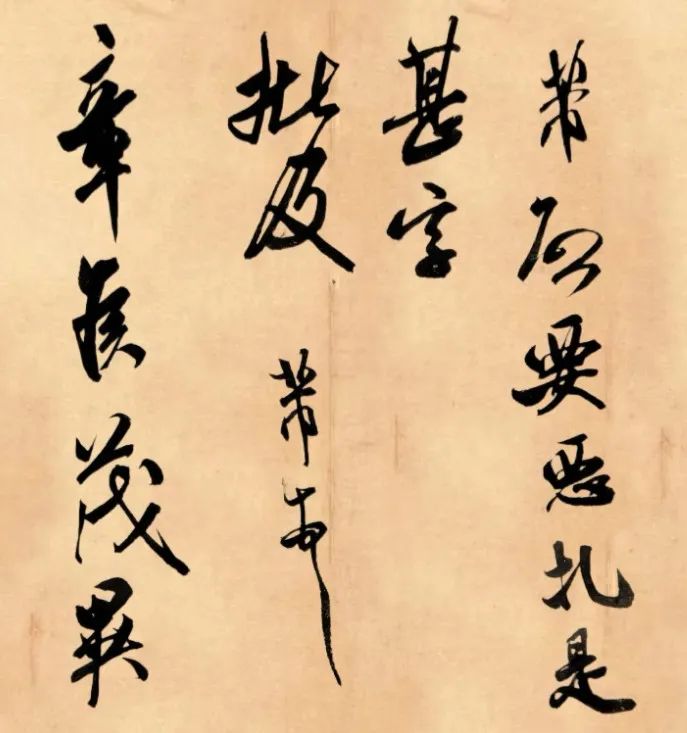 芾啓要惡札是
甚字
批及 芾
章侯茂異